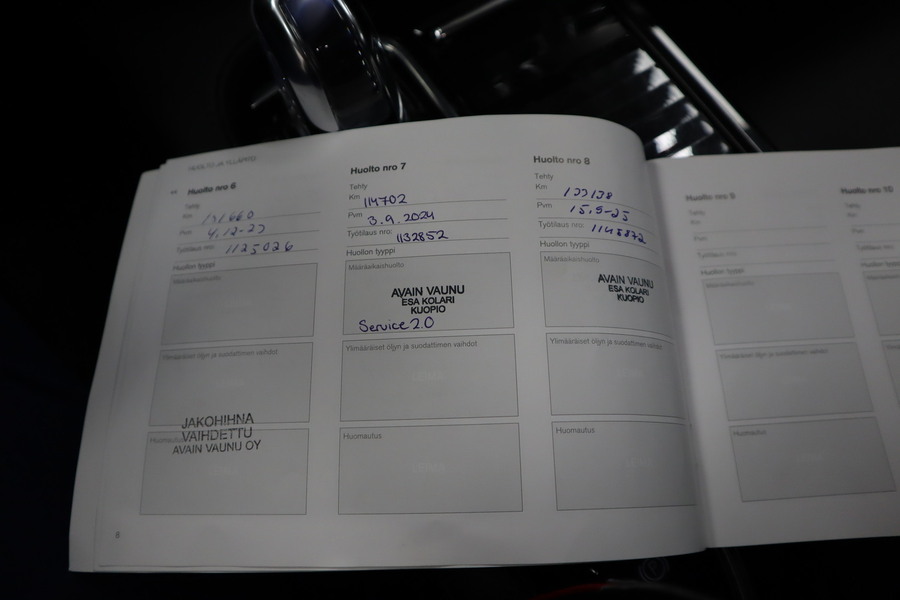 HUOLTO JA YLLÄPITO
Huolto nro 6
Tehty
Km
Pvm 4.12-23
Työtilaus nro: 1125026
Huollon tyyppi
Määräaikaishuolto
Ylimääräiset öljyn ja suodattimen vaihdot
JAKOHIHNA
VAIHDETTU
AVAIN VAUNU OY
Huomautus
6
Huolto nro 7
Tehty
Km 114702
Pvm 3.9.2024
Työtilaus nro: 1132852
Huollon tyyppi
Määräaikaishuolto
AVAIN VAUNU
ESA KOLARI
KUOPIO
Service 2.0
Ylimääräiset öljyn ja suodattimen vaihdot
Huomautus
Huolto nro 8
Tehty
Km
Pvm 15.5-25
Työtilaus nro: 1145872
Huollon tyyppi
Määräaikaishuolto
AVAIN VAUNU
ESA KOLARI
KUOPIO
Ylimääräiset öljyn ja suodattimen vaihdot
Huomautus
Huolto nro 9
Tehty
Km
Pvm
Työtilaus nro:
Huollon tyyppi
Määräaikaishuolto
Ylimääräiset öljyn ja suodattimen vaihdot
Huomautus
Huolto nro 10
Tehty
Km
Pvm
Työtilaus
Huollon